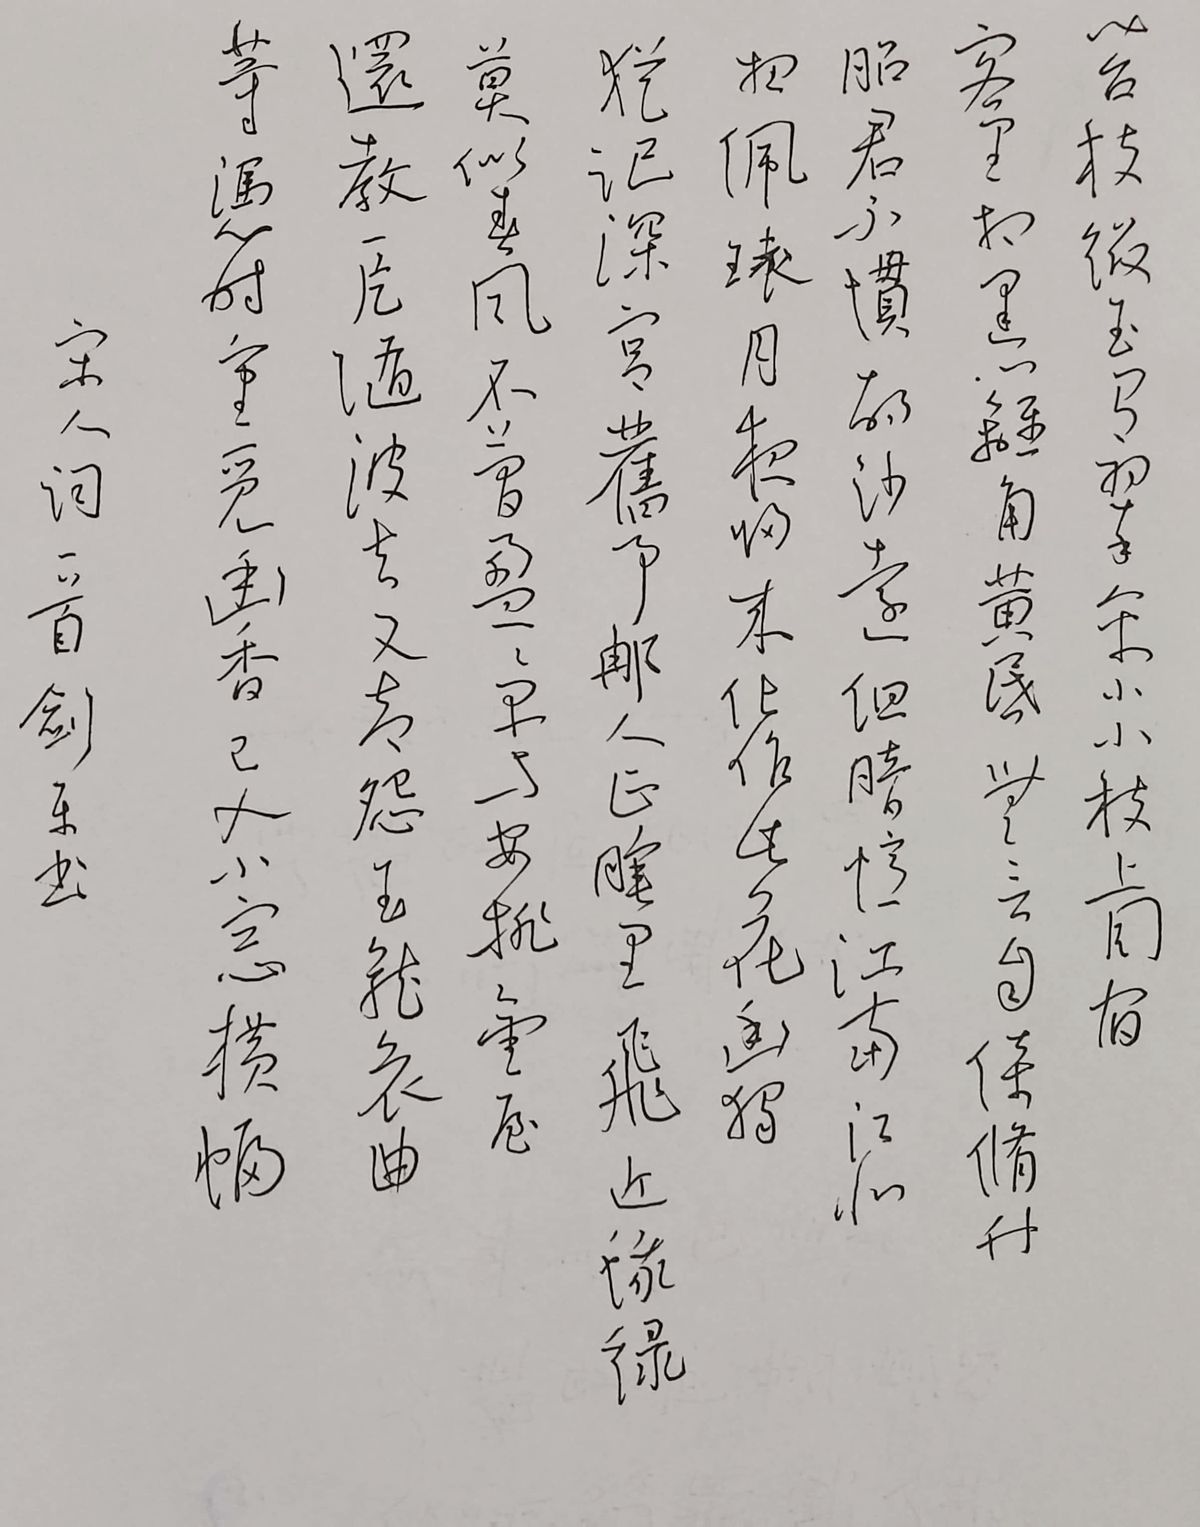 苔枝綴玉有翠禽小小枝上同宿
客里相逢籬角黃昏無言自倚脩竹
昭君不慣胡沙遠但暗憶江南江北
想佩環月夜歸來化作此花幽獨
猶記深宮舊事那人正睡里飛近蛾綠
莫似春風不管盈盈早與安排金屋
還教一片隨波去又却怨玉龍哀曲
等憑時重覓幽香已入小窓橫幅
宋人词一首劍東书